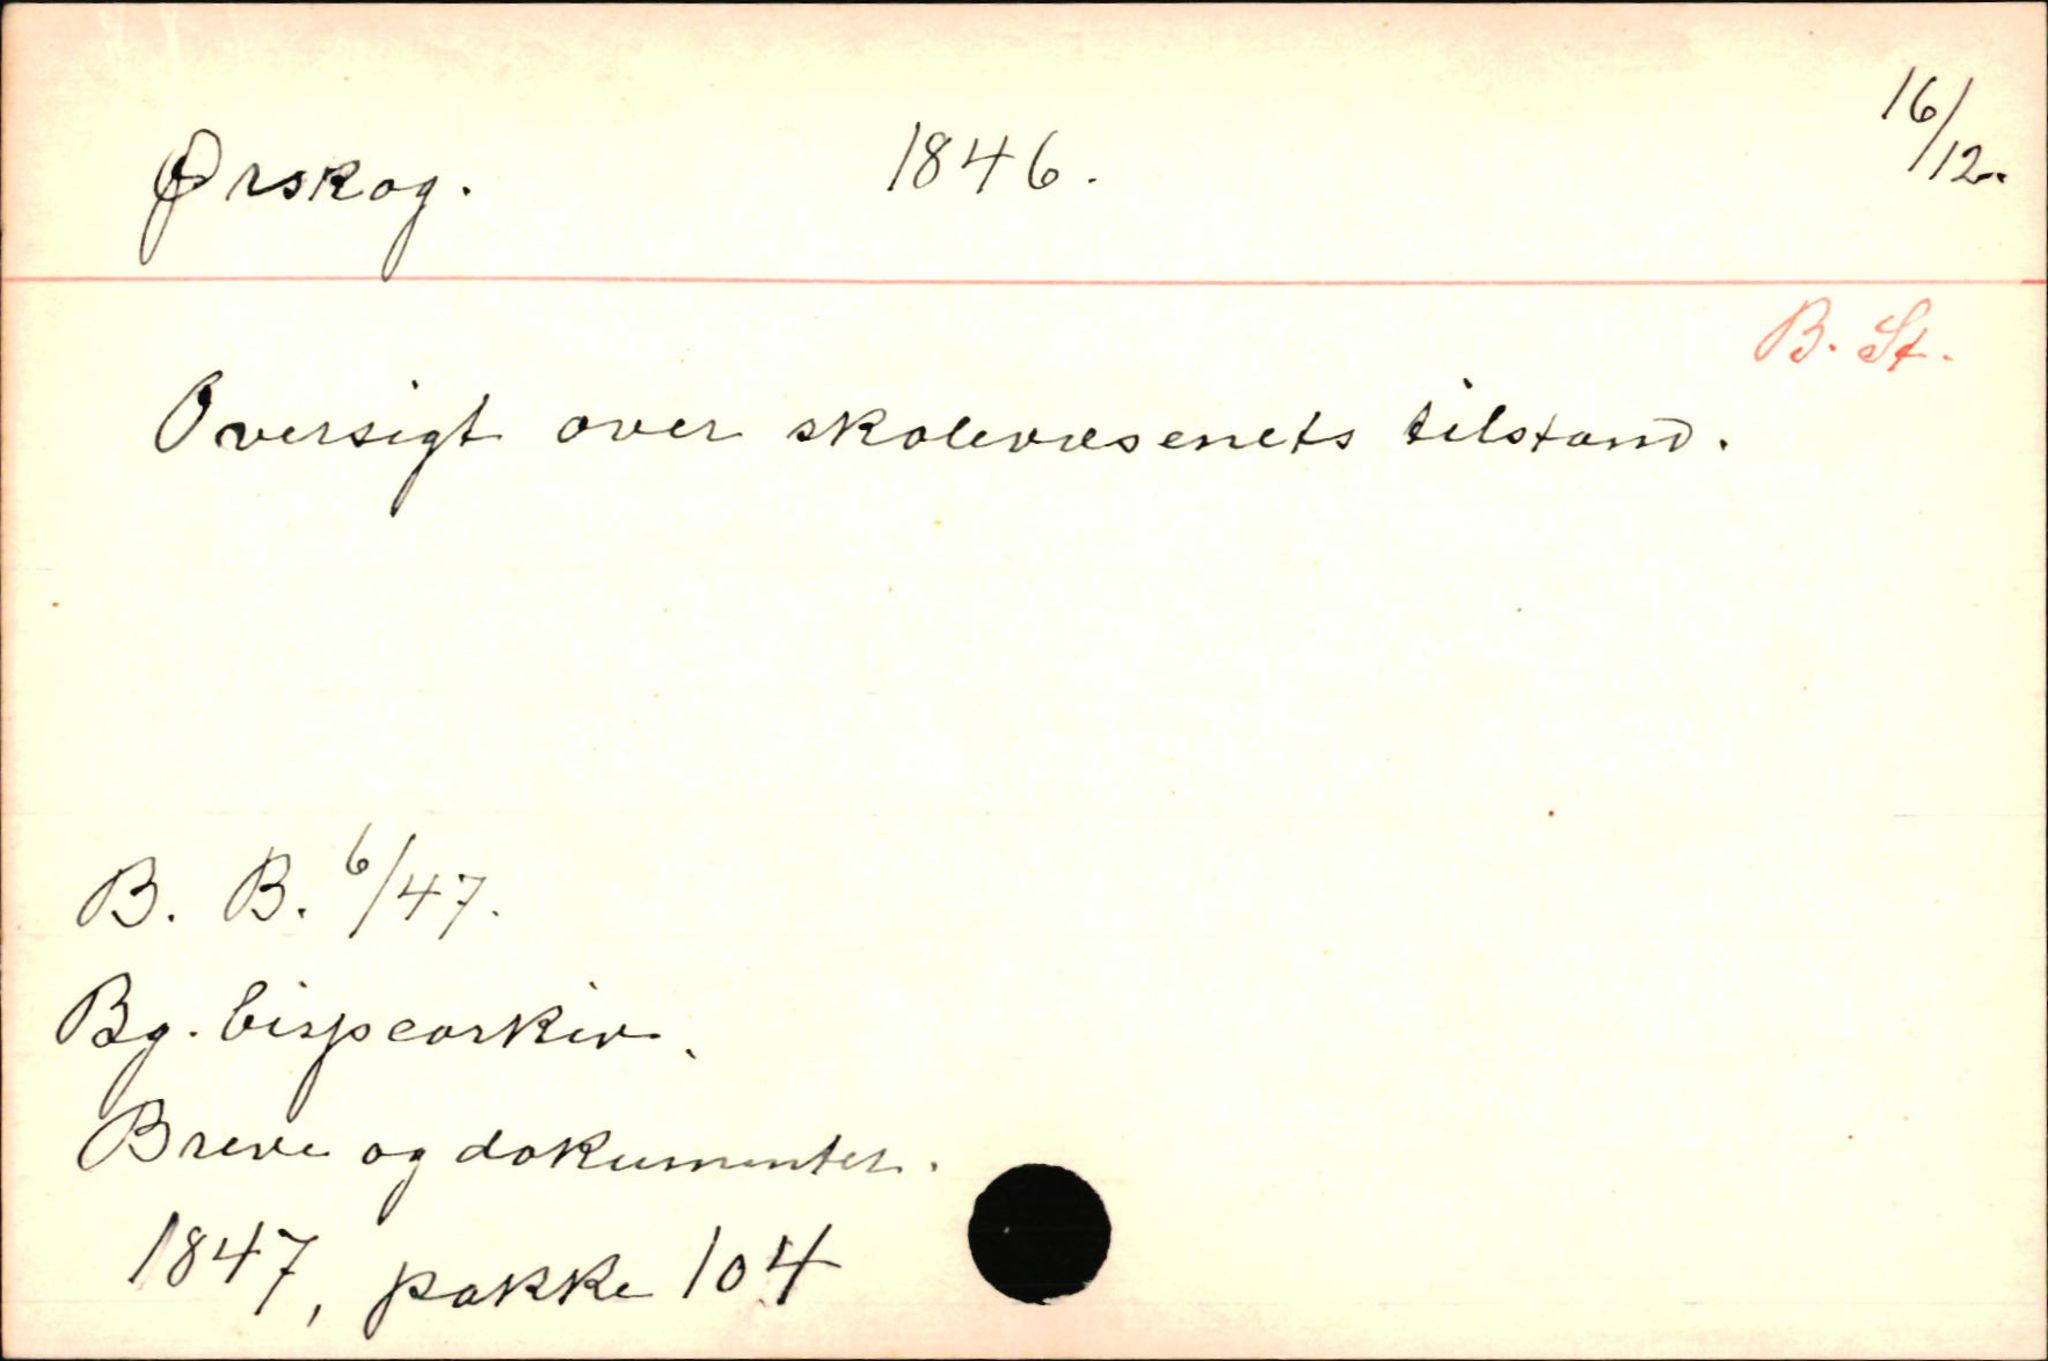 Ørskog. 1846. 16/12.
B. St.
Oversigt over skolevæsenets tilstand.
B. B. 6/47.
Bg. bispearkiv.
Breve og dokumenter.
1847, pakke 104